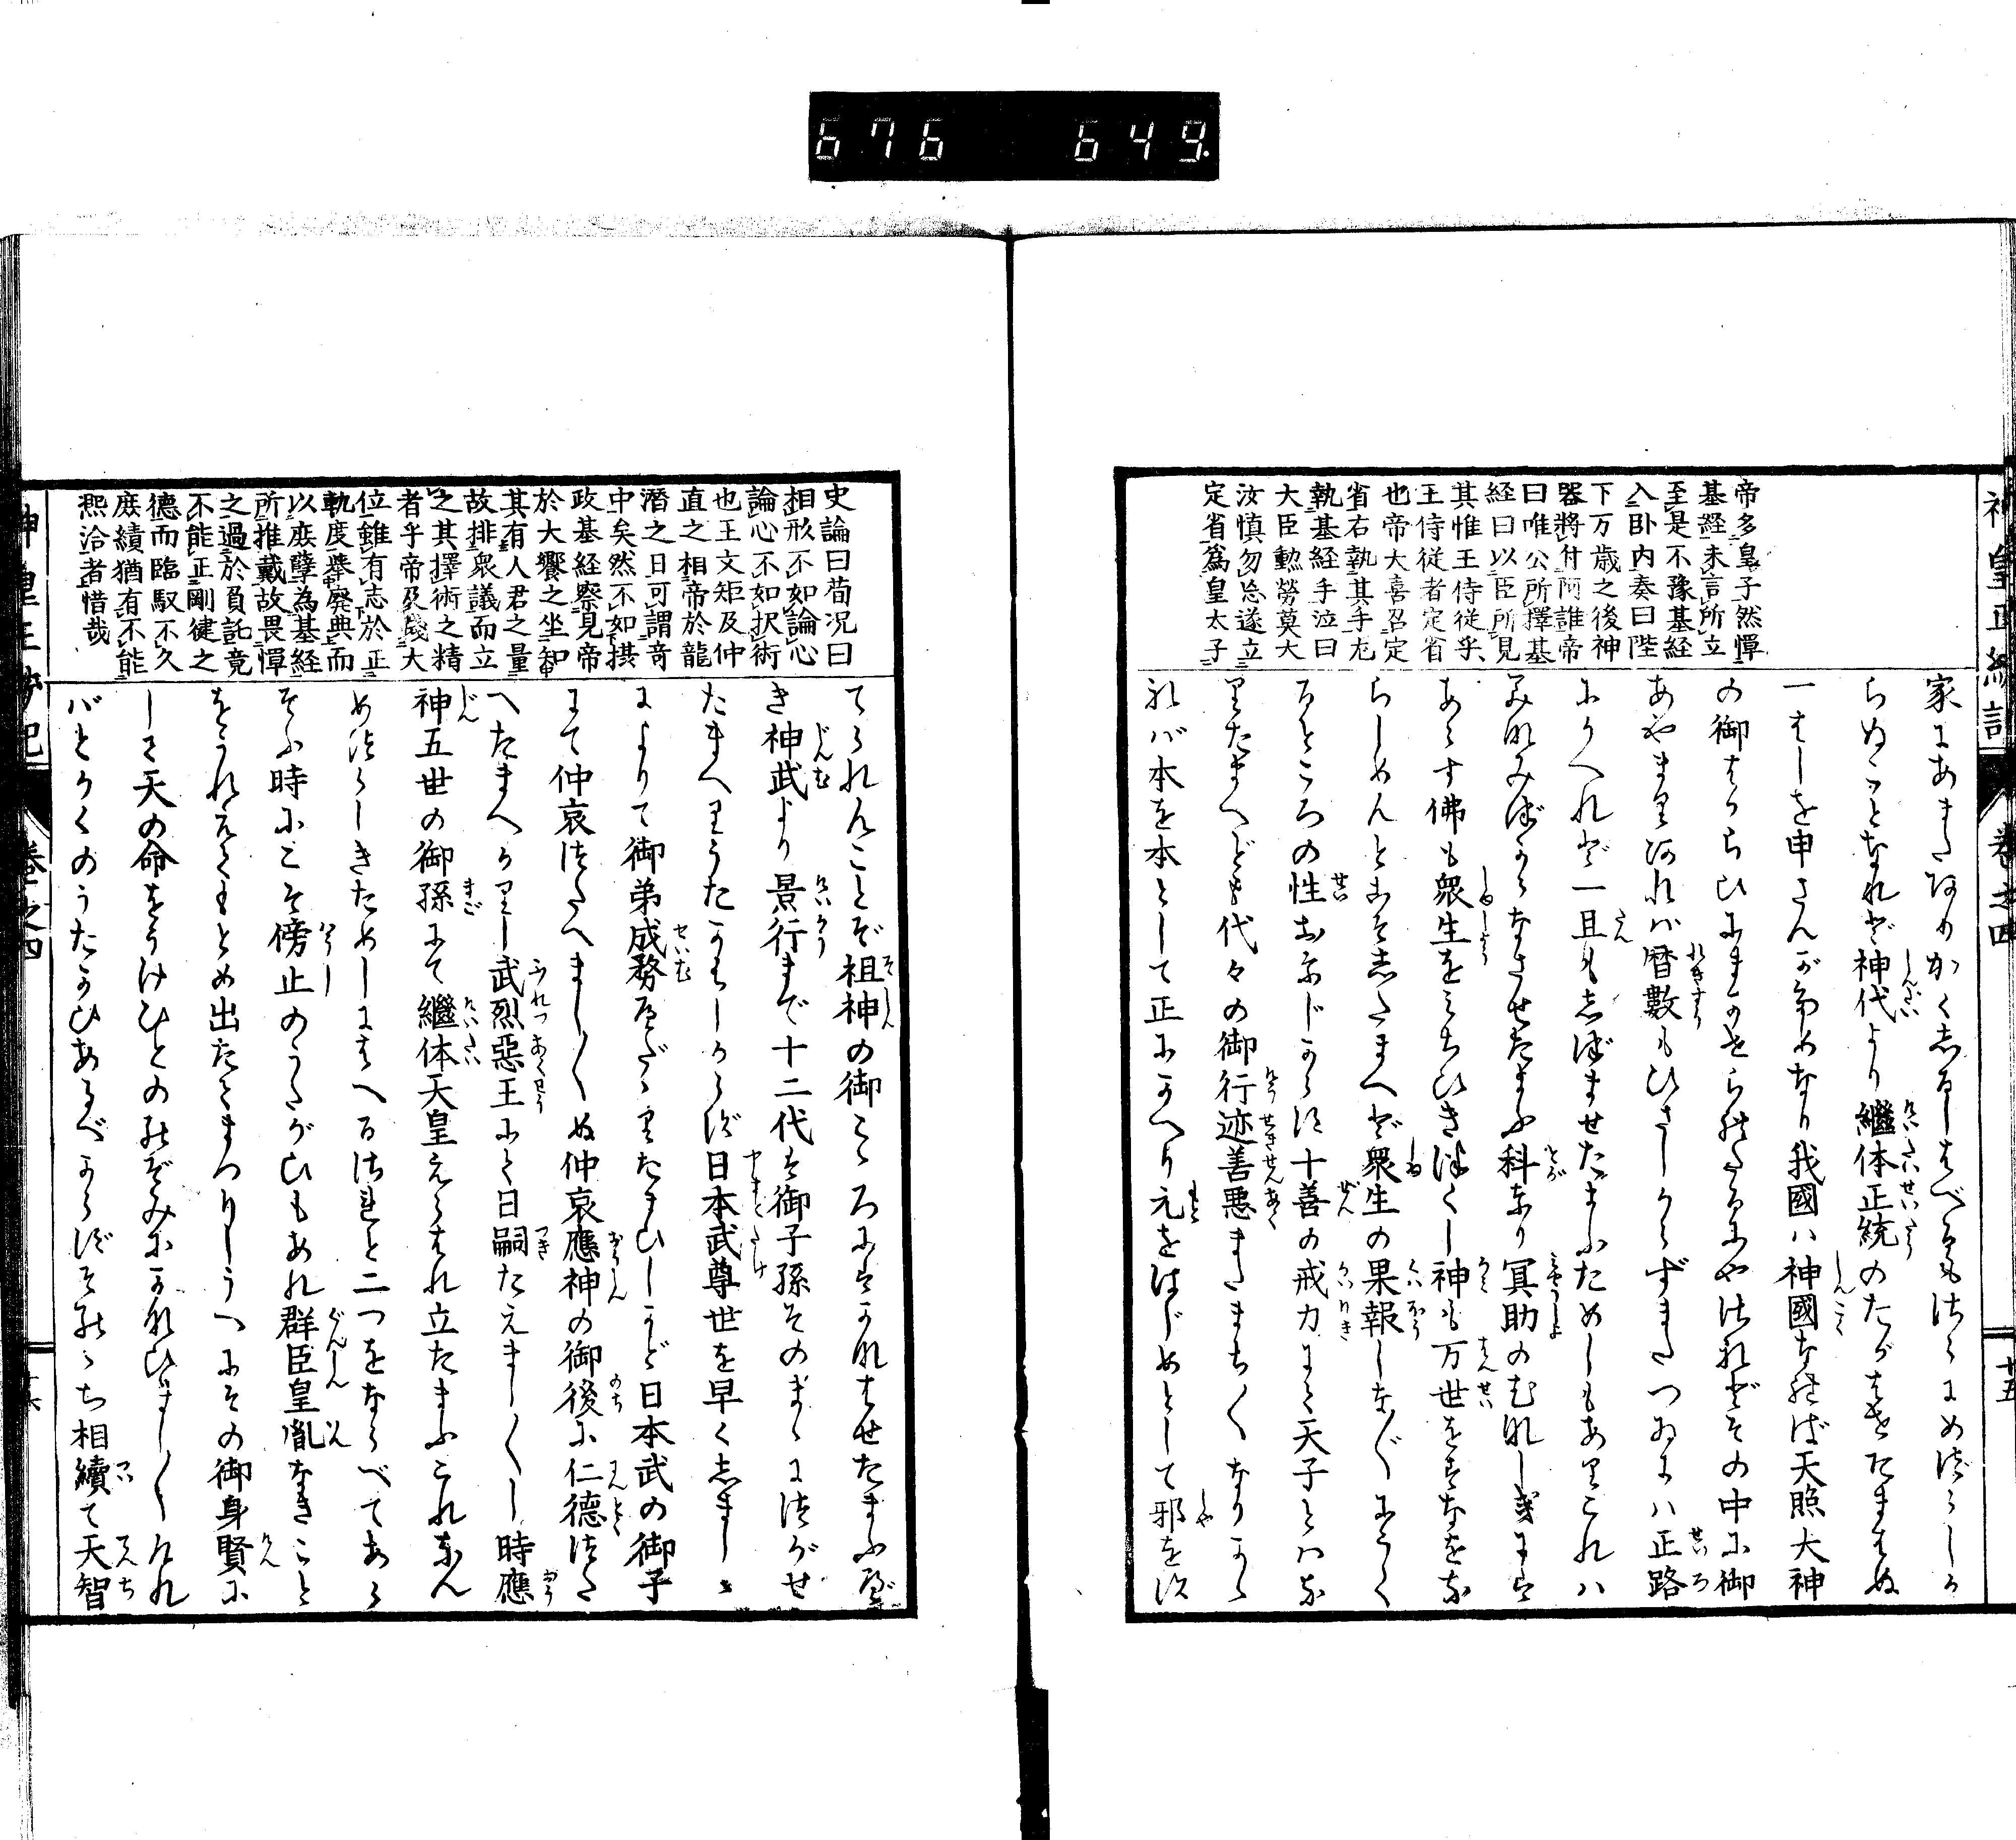 神皇正統記 巻之四 十五
帝多皇子然憚
基経未言所立
至是不豫基経
入卧内奏曰陛
下万歳之後神
器將付阿誰帝
曰唯公所擇基
経曰以臣所見
其惟王侍従乎
王侍従者定省
也帝大喜召定
省右執其手左
執基経手泣曰
大臣勲勞莫大
汝慎勿忘遂立
定省為皇太子
家にあまたあめりかくしるしはべるもさらにめづらしか
らぬことなれど神代より繼体正統のたがはせたまはぬ
一はしを申さんがためなり我國ハ神國なれば天照大神
の御はからひにまかせられたるにやされどその中に御
あやまりあれバ暦數もひさしからずまたつゐにハ正路
にかへれど一旦もしづませたまふためしもありこれハ
みなみづからなさせたまふ科なり冥助のむなしきには
あらす佛も衆生をみちひきつくし神も万世をすなをな
らしめんとこそしたまへど衆生の果報しなじなにうく
るところの性おなじからず十善の戒力にて天子とハな
りたまへども代々の御行迹善悪またまちまちなりかゝ
れバ本を本として正にかへり元をはじめとして邪をす
史論曰荀况曰
相形不如論心
論心不如択術
也王文矩及仲
直之相帝於龍
潛之日可謂奇
中矣然不如摂
政基経察見帝
於大饗之坐知
其有人君之量
故排衆議而立
之其擇術之精
者乎帝及踐大
位雖有志於正
軌度舉廃典而
以庶孽為基経
所推戴故畏憚
之過於負託竟
不能正剛健之
德而臨馭不久
庶績猶有不能
熙洽者惜哉
てられんことぞ祖神の御こゝろにはかなはせたまふべ
き神武より景行まで十二代は御子孫そのまゝにつがせ
たまへりうたがはしからず日本武尊世を早くしましゝ
によりて御弟成務へだゝりたまひしかど日本武の御子
にて仲哀つたへましましぬ仲哀應神の御後に仁德つた
へたまへりし武烈悪王にて日嗣たえましましし時應
神五世の御孫にて繼体天皇えらはれ立たまふこれなん
めづらしきためしにはへるされと二つをならべてあら
そふ時にこそ傍止のうたがひもあれ群臣皇胤なきこと
をうれえてもとめ出たてまつりしうへにその御身賢に
して天の命をうけひとののぞみにかなひましましけれ
バとかくのうたかひあるべからずそれゝち相續て天智
神皇正統記 巻之四 十六